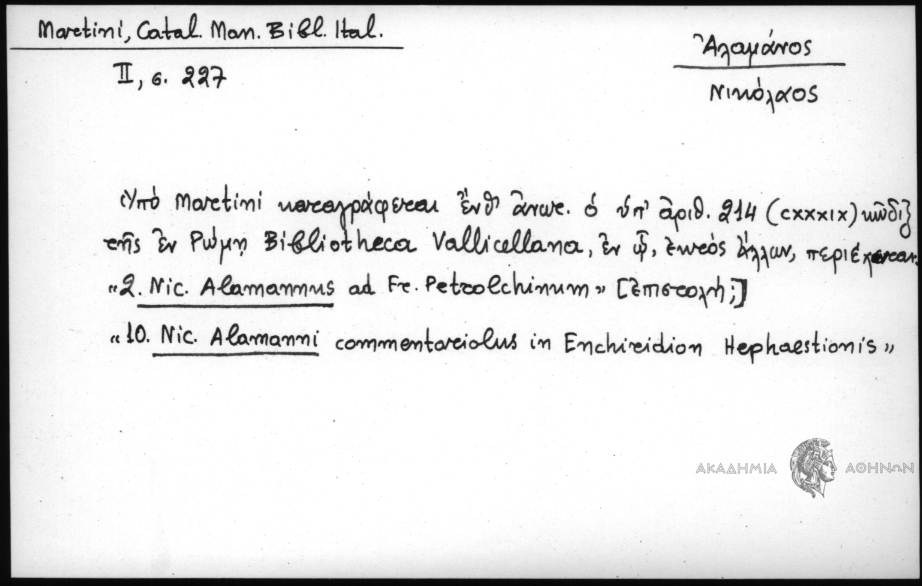 Martini, Catal. Man. Bibl. Ital.
II, σ. 227
Ἀλαμάνος
Νικόλαος
Ὑπὸ Martini καταγράφεται ἔνθ' ἄνωτ. ὁ ὑπ' ἀριθ. 214 (CXXXIX) κῶδιξ
τῆς ἐν Ρώμῃ Bibliotheca Vallicellana, ἐν ᾧ, ἐκτὸς ἄλλων, περιέχονται
«2. Nic. Alamannus ad Fr. Petrolchinum» [ἐπιστολή;]
«10. Nic. Alamanni commentariolus in Enchiridion Hephaestionis»
ΑΚΑΔΗΜΙΑ ΑΘΗΝΩΝ